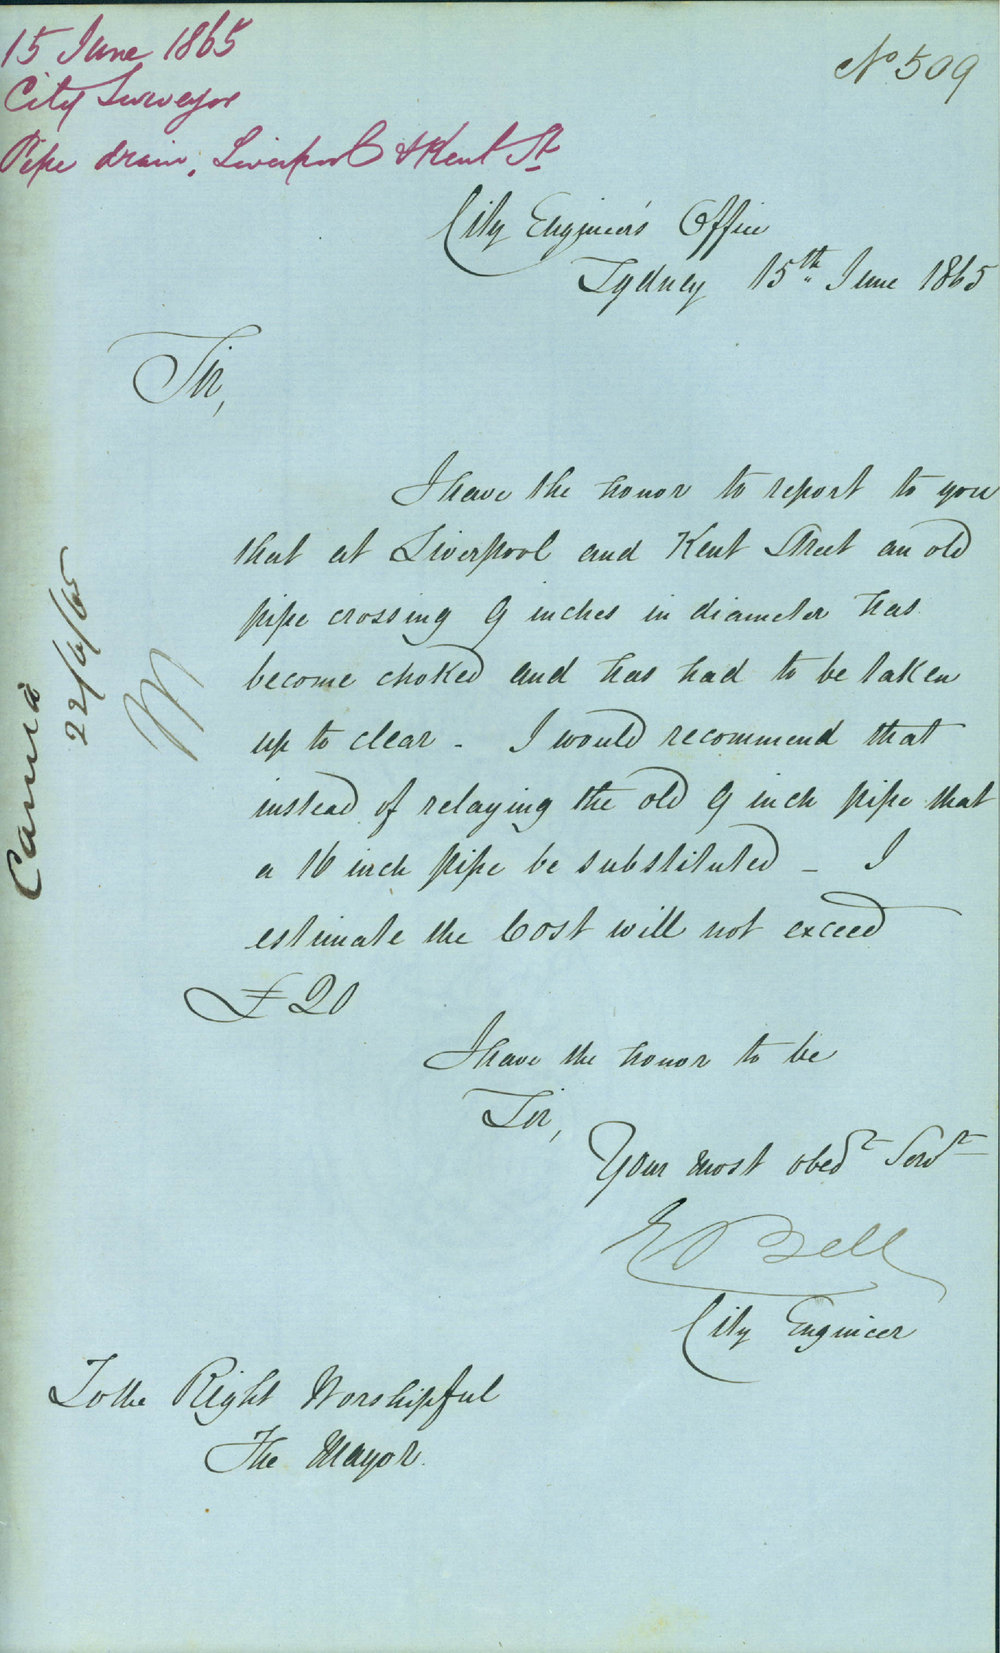 15 June 1865
City Surveyor
Pipe drain, Liverpool & Kent St
No 509
City Engineer's Office
Sydney 15th June 1865
Sir,
I have the honor to report to you
that at Liverpool and Kent Street an old
pipe crossing 9 inches in diameter has
become choked and has had to be taken
up to clear - I would recommend that
instead of relaying the old 9 inch pipe that
a 16 inch pipe be substituted - I
estimate the Cost will not exceed
£20
I have the honor to be
Sir,
Your most obedt Servt
E Bell
City Engineer
To the Right Worshipful
The Mayor.
22/6/65